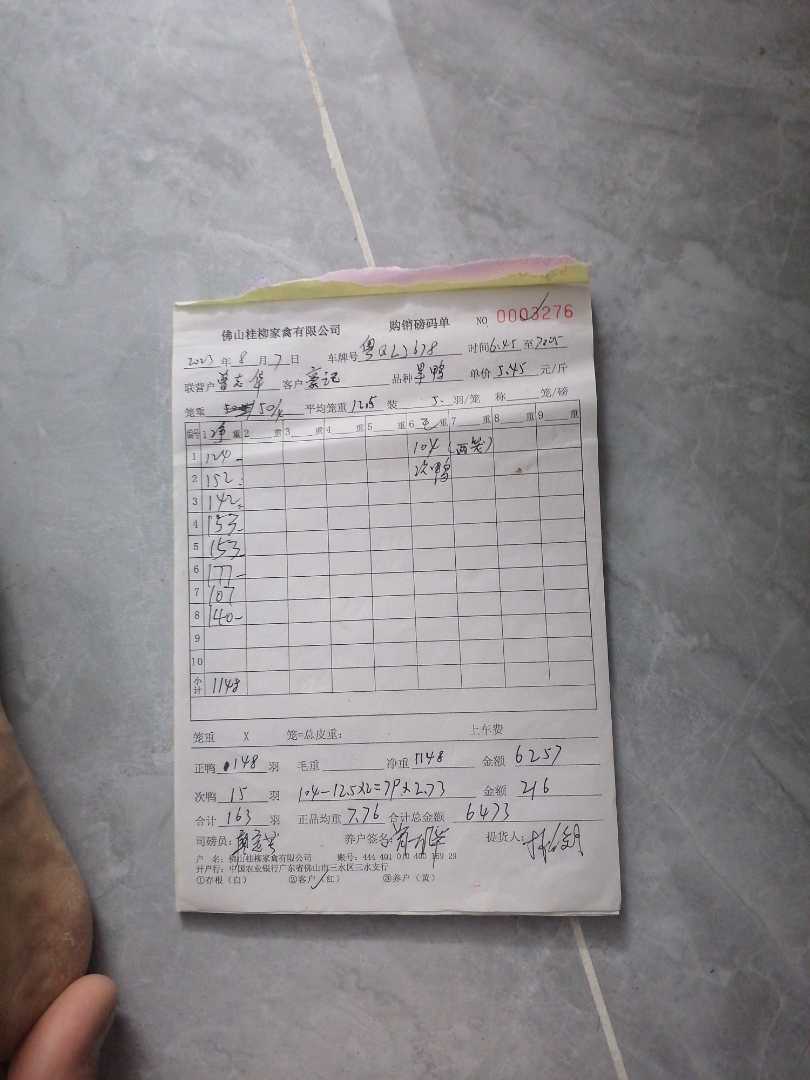 佛山桂柳家禽有限公司 购销磅码单 NO 0003276
2023 年 8 月 7 日 车牌号 粤QL3678 时间 6.45 至 7005
联营户 曾志华 客户 豪记 品种 单价 5.45 元/斤
笼重 50% 平均笼重 12.5 装 5. 羽/笼 称 笼/磅
编号 1 净 重 2 重 3 重 4 重 5 重 6 毛 重 7 重 8 重 9 重
1 124 104 (两笼)
2 152 次鸭
3 142
4 153
5 153
6 177
7 107
8 140
9
10
小计 1148
笼重 X 笼=总皮重: 上车费
正鸭 148 羽 毛重 净重 1148 金额 6257
次鸭 15 羽 104-12.5×2=79×2.73 金额 216
合计 163 羽 正品均重 7.76 合计总金额 6473
司磅员: 养户签名: 提货人:
户 名: 佛山桂柳家禽有限公司 账号: 444 491 010 400 159 29
开户行: 中国农业银行广东省佛山市三水区三水支行
①存根(白) ②客户(红) ③养户(黄)